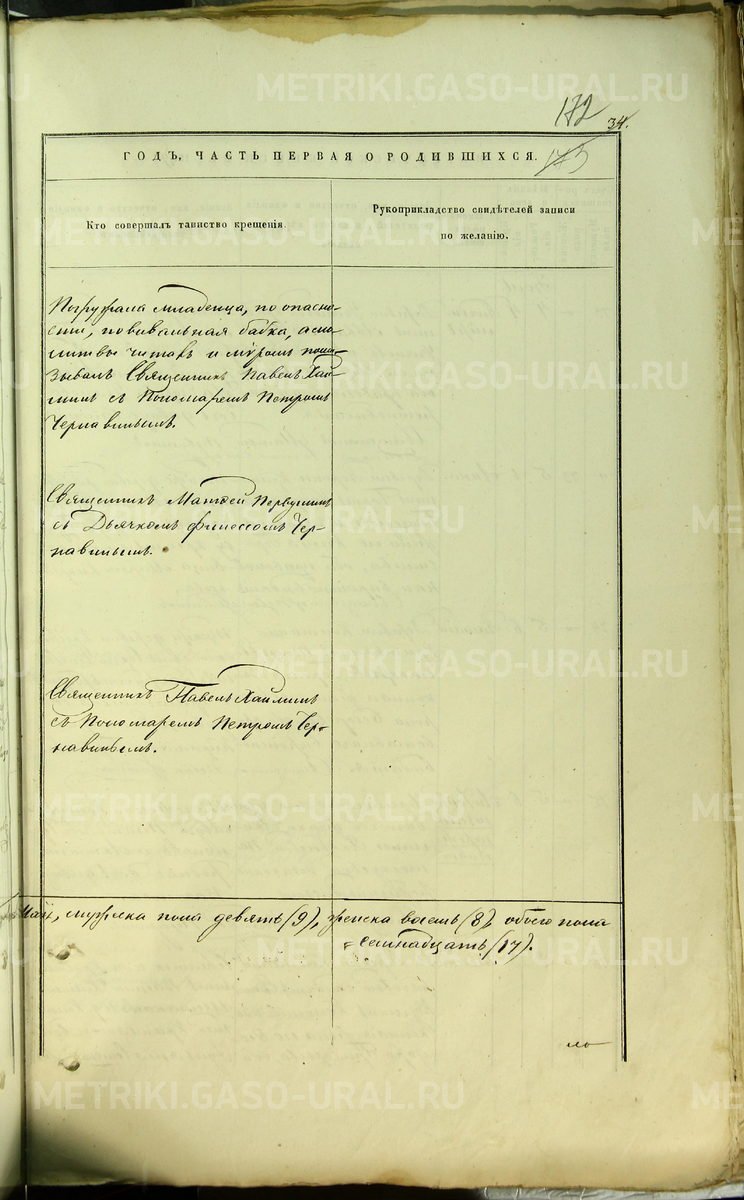 METRIKI.GASO-URAL.RU
172
34.
173
ГОДЪ, ЧАСТЬ ПЕРВАЯ О РОДИВШИХСЯ.
Кто совершалъ таинство крещенія.
Рукоприкладство свидѣтелей записи
по желанію.
Погружала младенца, по опасно-
сти, повивальная бабка, а мо-
литвы читавъ и мѵромъ пома-
зывалъ Священникъ Павелъ
съ Пономаремъ Петромъ
Чернавинымъ.
Священникъ Матѳей Первушинъ
съ Дьячкомъ Чер-
навинымъ.
Священникъ Павелъ
съ Пономаремъ Петромъ Чер-
навинымъ.
мужеска пола девять (9), женска восемь (8), обоего пола
семнадцать (17).